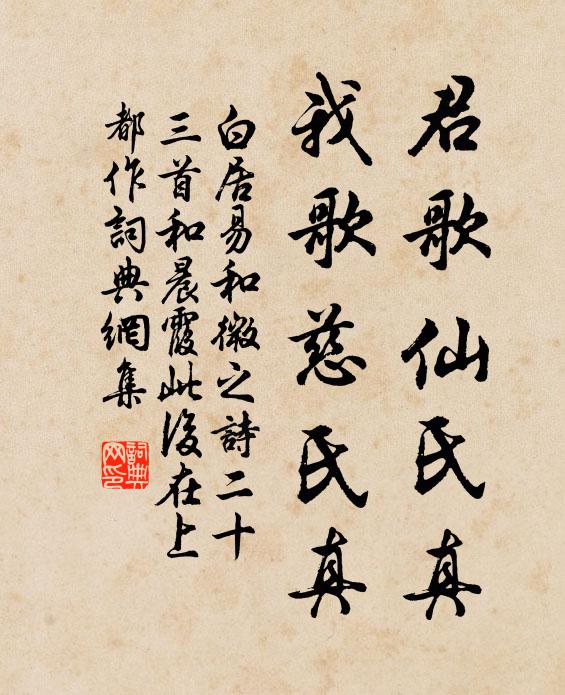 君歌仙氏真
我歌慈氏真
白居易和微之詩二十
三首和晨霞此後在上
都作詞典網集
詞典
网印